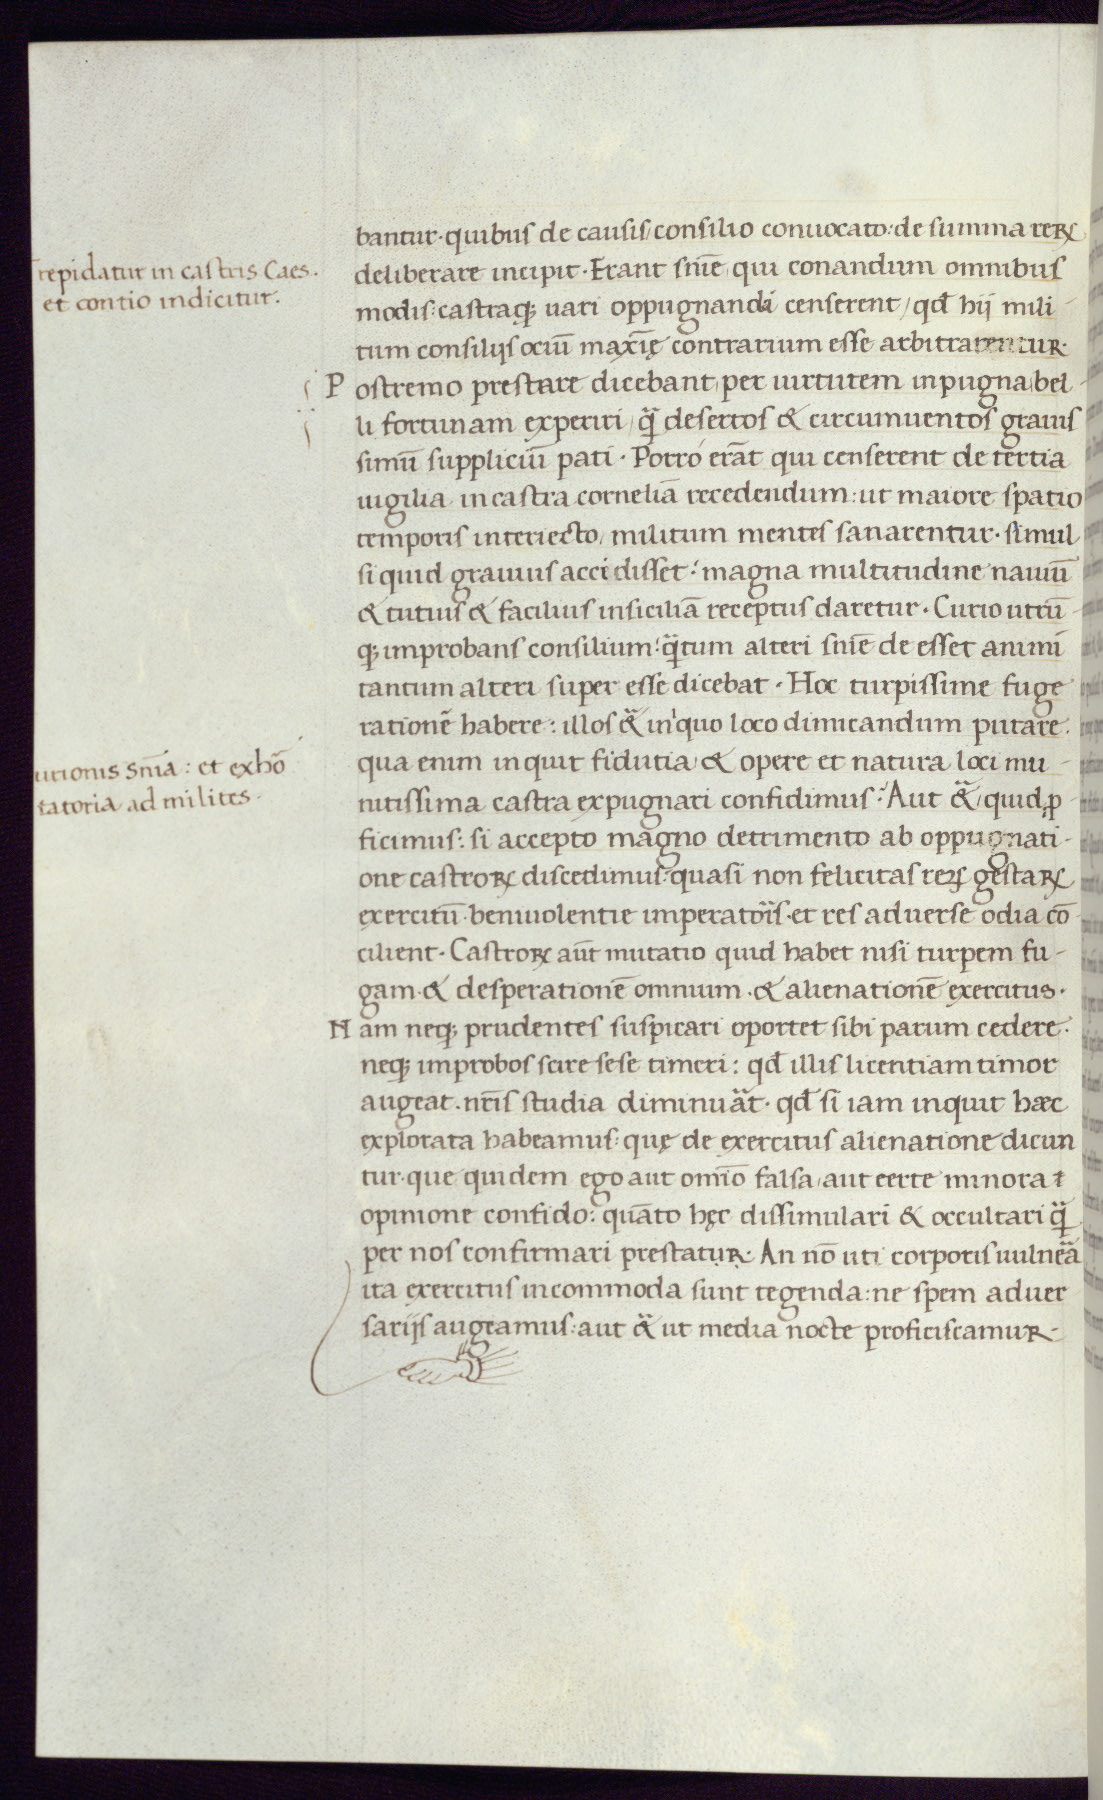 bantur· quibus de causis/ consilio conuocato: de summa reꝝ
deliberare incipit· Erant sn̅ie̅ qui conandum omnibus
modis: castraq; uari oppugnandi censerent/ qd̅ hij mili-
tum consilijs ociu̅ maxi̅ę contrarium esse arbitrarentur·
Postremo prestare dicebant, per uirtutem in pugna, bel-
li fortunam experiri/ qua̅ desertos & circumuentos grauis
simu̅ suppliciu̅ pati· Porro era̅t qui censerent de tertia
uigilia in castra cornelia̅ recedendum: ut maiore spatio
temporis interiecto/ militum mentes sanarentur· simul
si quid grauius accidisset: magna multitudine nauiu̅
& tutius & facilius in sicilia̅ receptus daretur· Curio utru̅-
q; improbans consilium: qua̅tum alteri sn̅ie̅ de esset animi
tantum alteri super esse dicebat· Hos turpissime fuge
ratione̅ habere: illos &ia̅ iniquo loco dimicandum putare·
qua enim inquit fidutia, & opere et natura loci mu-
nitissima castra expugnari confidimus· Aut &ia̅/ quid ꝓ-
ficimus: si accepto magno detrimento ab oppugnati-
one castroꝝ discedimus· quasi non felicitas reꝝ gestaꝝ
exercitu̅· beniuolentie imperatoris· et res aduerse odia co̅-
cilient· Castroꝝ au̅t mutatio quid habet nisi turpem fu-
gam· & desperatione̅ omnium· & alienatione̅ exercitus·
Nam neq; prudentes suspicari oportet sibi parum cedere·
neq; improbos scire sese timeri: qd̅ illis licentiam timor
augeat· nr̅is studia diminuat· qd̅ si iam inquit hæc
explorata habeamus: quę de exercitus alienatione dicun
tur· que quidem ego aut omi̅o falsa, aut certe minora
opinione confido: qua̅to hęc dissimulari & occultari qua̅
per nos confirmari prestatur· An no̅ uti corporis uulnera
ita exercitus incommoda sunt tegenda: ne spem aduer
sarijs augeamus: aut &ia̅ ut media nocte proficiscamur·
repidatur in castris Caes.
et contio indicitur.
urionis sn̅ia: et exho̅
tatoria ad milites·